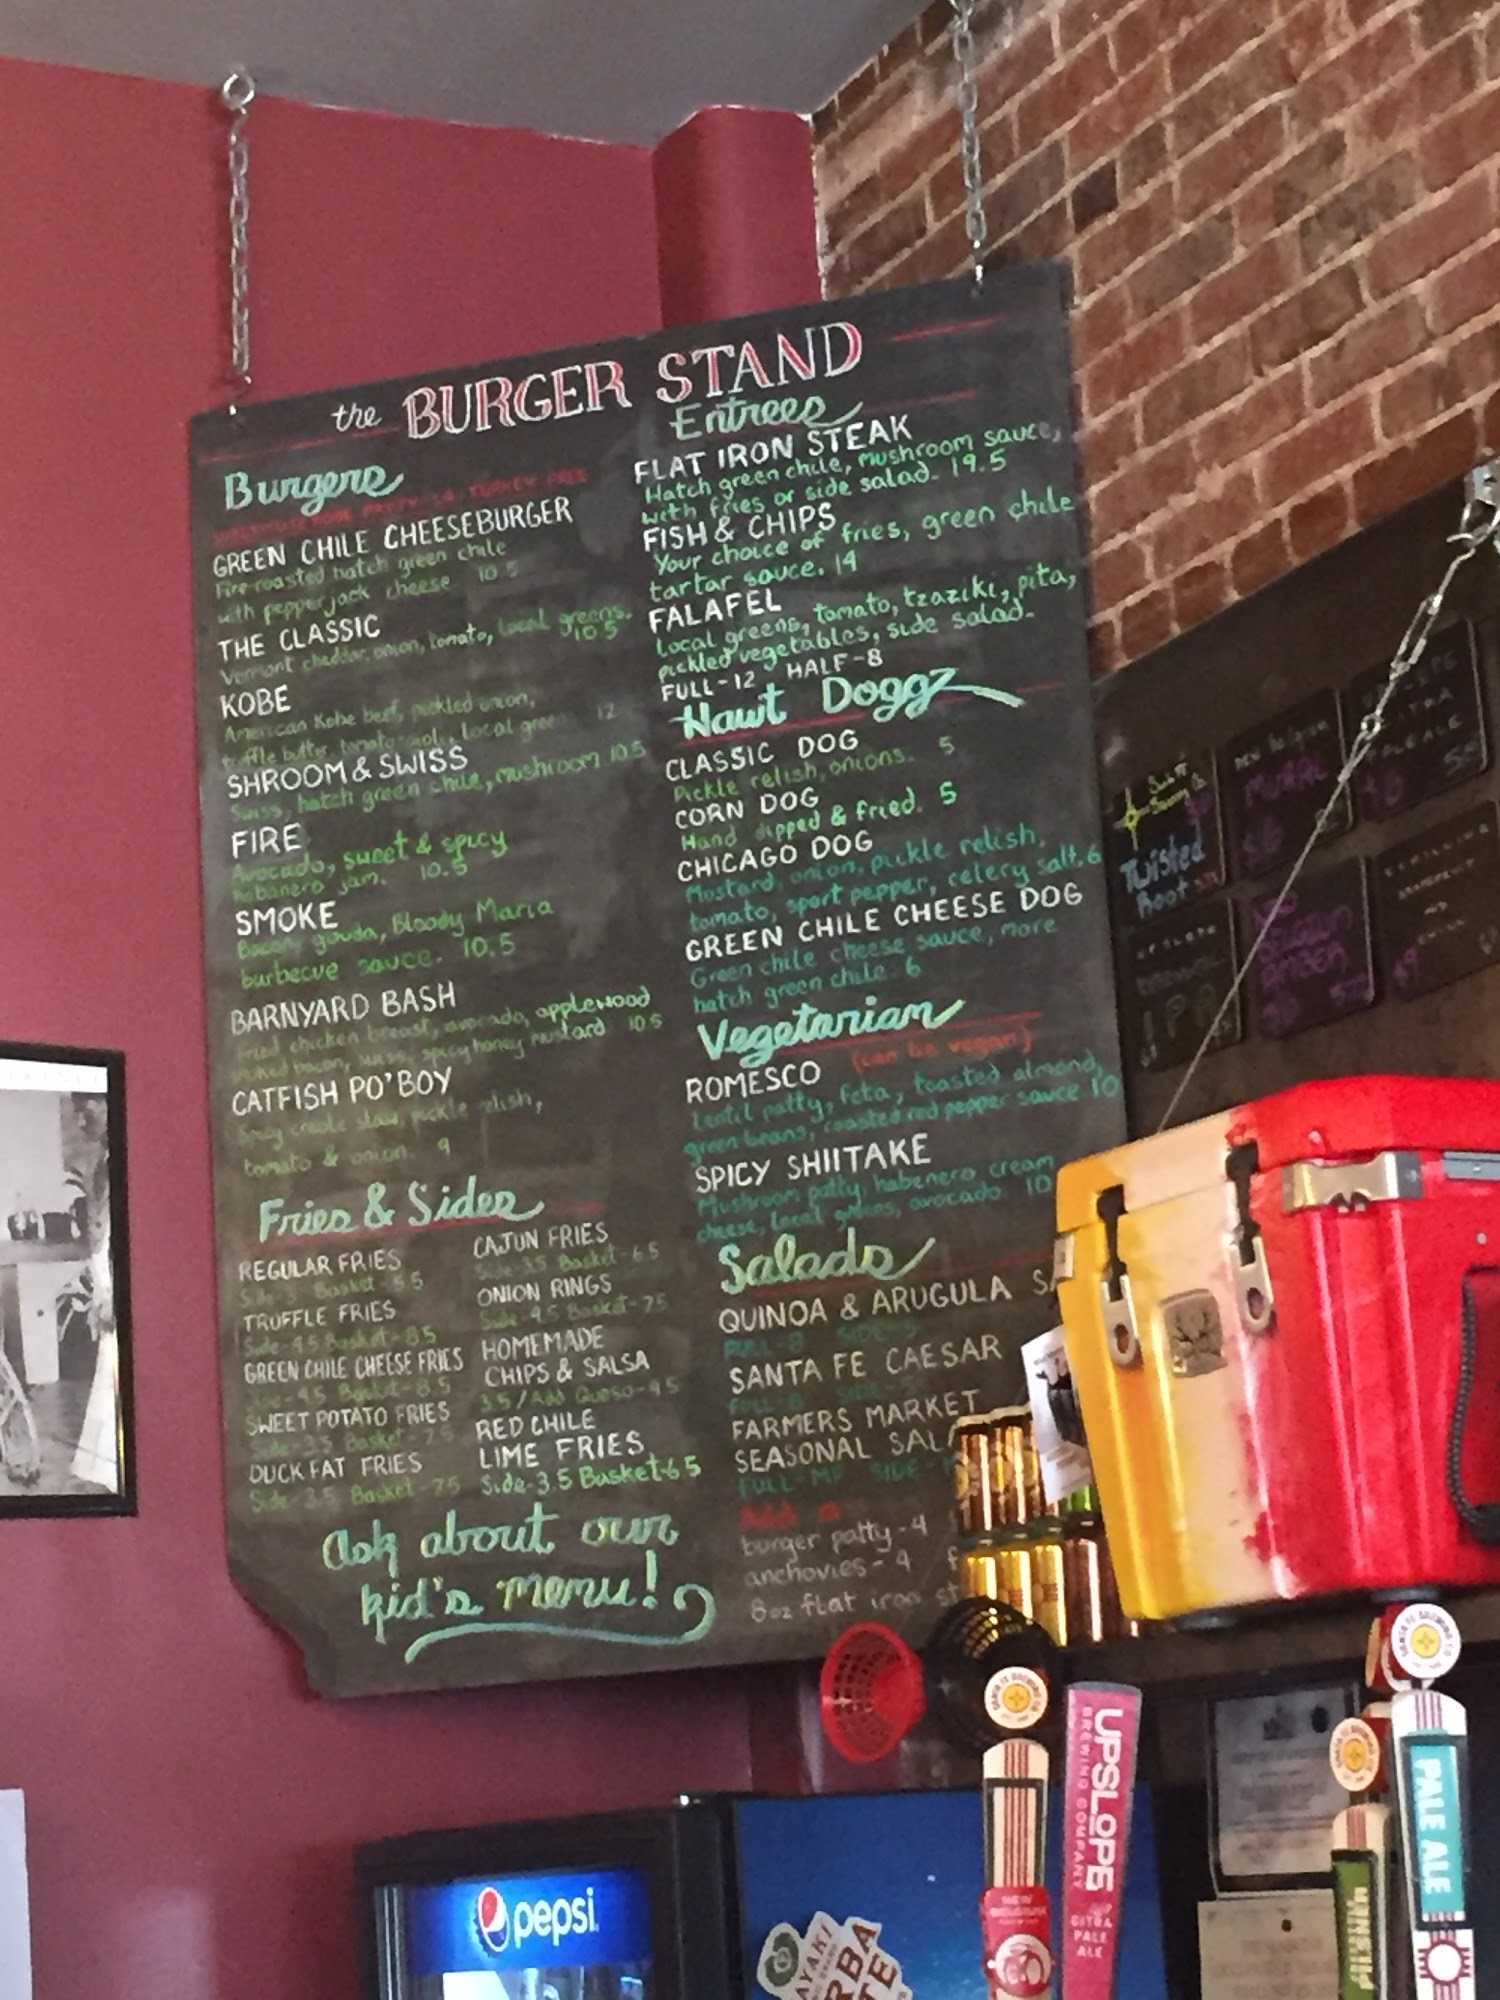 the BURGER STAND
Burgers
GREEN CHILE CHEESEBURGER
Fire-roasted hatch green chile
with pepperjack cheese 10.5
THE CLASSIC
Vermont cheddar, onion, tomato, local greens.
10.5
KOBE
American Kobe beef, pickled onion,
truffle butter, tomato aioli, local green 12
SHROOM & SWISS
Swiss, hatch green chile, mushroom 10.5
FIRE
Avocado, sweet & spicy
habanero jam. 10.5
SMOKE
Bacon, gouda, Bloody Maria
burbecue sauce. 10.5
BARNYARD BASH
Fried chicken breast, avocado, applewood
smoked bacon, swiss, spicy honey mustard 10.5
CATFISH PO'BOY
Spicy creole slaw, pickle relish,
tomato & onion. 9
Fries & Sides
REGULAR FRIES
Side-3 Basket-5.5
TRUFFLE FRIES
Side-4.5 Basket-8.5
GREEN CHILE CHEESE FRIES
Side-4.5 Basket-8.5
SWEET POTATO FRIES
Side-3.5 Basket-7.5
DUCK FAT FRIES
Side-3.5 Basket-7.5
CAJUN FRIES
Side-3.5 Basket-6.5
ONION RINGS
Side-4.5 Basket-7.5
HOMEMADE
CHIPS & SALSA
3.5/Add Queso-4.5
RED CHILE
LIME FRIES
Side-3.5 Basket-6.5
Ask about our
kid's menu!
Entrees
FLAT IRON STEAK
Hatch green chile, mushroom sauce,
with fries or side salad. 19.5
FISH & CHIPS
Your choice of fries, green chile
tartar sauce. 14
FALAFEL
Local greens, tomato, tzaziki, pita,
pickled vegetables, side salad.
FULL-12 HALF-8
Hawt Doggz
CLASSIC DOG
Pickle relish, onions. 5
CORN DOG
Hand dipped & fried. 5
CHICAGO DOG
Mustard, onion, pickle relish,
tomato, sport pepper, celery salt. 6
GREEN CHILE CHEESE DOG
Green chile cheese sauce, more
hatch green chile. 6
Vegetarian
(can be vegan)
ROMESCO
Lentil patty, feta, toasted almond,
green beans, roasted red pepper sauce 10
SPICY SHIITAKE
Mushroom patty, habenero cream
cheese, local greens, avocado 10
Salads
QUINOA & ARUGULA SA
FULL-8 SIDE-5
SANTA FE CAESAR
FULL-8
FARMERS MARKET
SEASONAL SAL
FULL-MP SIDE-
Add a
burger patty-4
anchovies-4
8oz flat iron st
Twisted
Root
NEW Belgium
MURAL
$6
CITRA
PALE ALE
IPA
pepsi
UPSLOPE
BREWING COMPANY
CITRA
PALE
ALE
NEW
BELGIUM
PALE ALE
PILSNER